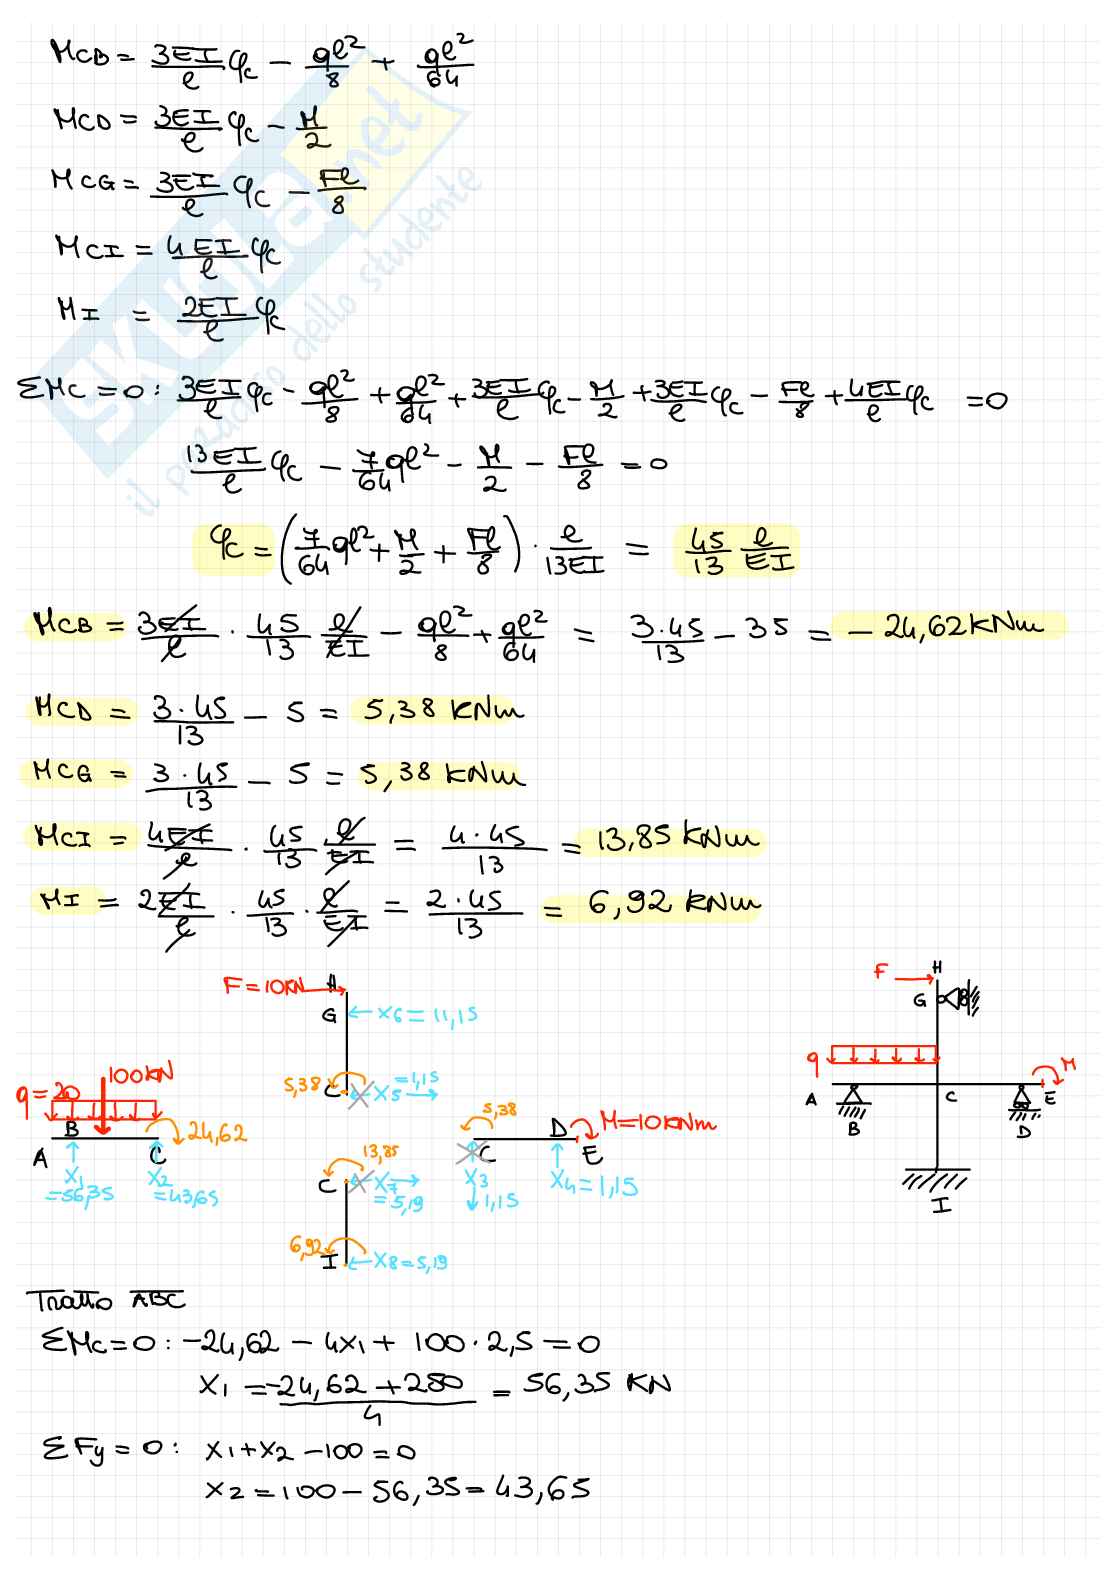 MCB = 3EI/l φc − ql²/8 + ql²/64
MCD = 3EI/l φc − M/2
MCG = 3EI/l φc − Fl/8
MCI = 4EI/l φc
MI = 2EI/l φc
ΣMc = 0 : 3EI/l φc − ql²/8 + ql²/64 + 3EI/l φc − M/2 + 3EI/l φc − Fl/8 + 4EI/l φc = 0
13EI/l φc − 7/64 ql² − M/2 − Fl/8 = 0
φc = (7/64 ql² + M/2 + Fl/8) · l/13EI = 45/13 l/EI
MCB = 3EI/l · 45/13 l/EI − ql²/8 + ql²/64 = 3·45/13 − 35 = − 24,62 KNm
MCD = 3·45/13 − 5 = 5,38 KNm
MCG = 3·45/13 − 5 = 5,38 KNm
MCI = 4EI/l · 45/13 l/EI = 4·45/13 = 13,85 KNm
MI = 2EI/l · 45/13 · l/EI = 2·45/13 = 6,92 KNm
SKUOLA.net
il paradiso dello studente
F = 10KN H
G X6 = 11,15
5,38 C X5 = 1,15
q = 20 100KN
24,62
A B C
X1 = 56,35 X2 = 43,65
13,85
C X7 = 5,19
6,92 I X8 = 5,19
5,38
C D E M = 10KNm
X3 1,15 X4 = 1,15
F H
G
q M
A B C D E
I
Tratto ABC
ΣMc = 0 : −24,62 − 4X1 + 100·2,5 = 0
X1 = −24,62 + 250/4 = 56,35 KN
ΣFy = 0 : X1 + X2 − 100 = 0
X2 = 100 − 56,35 = 43,65